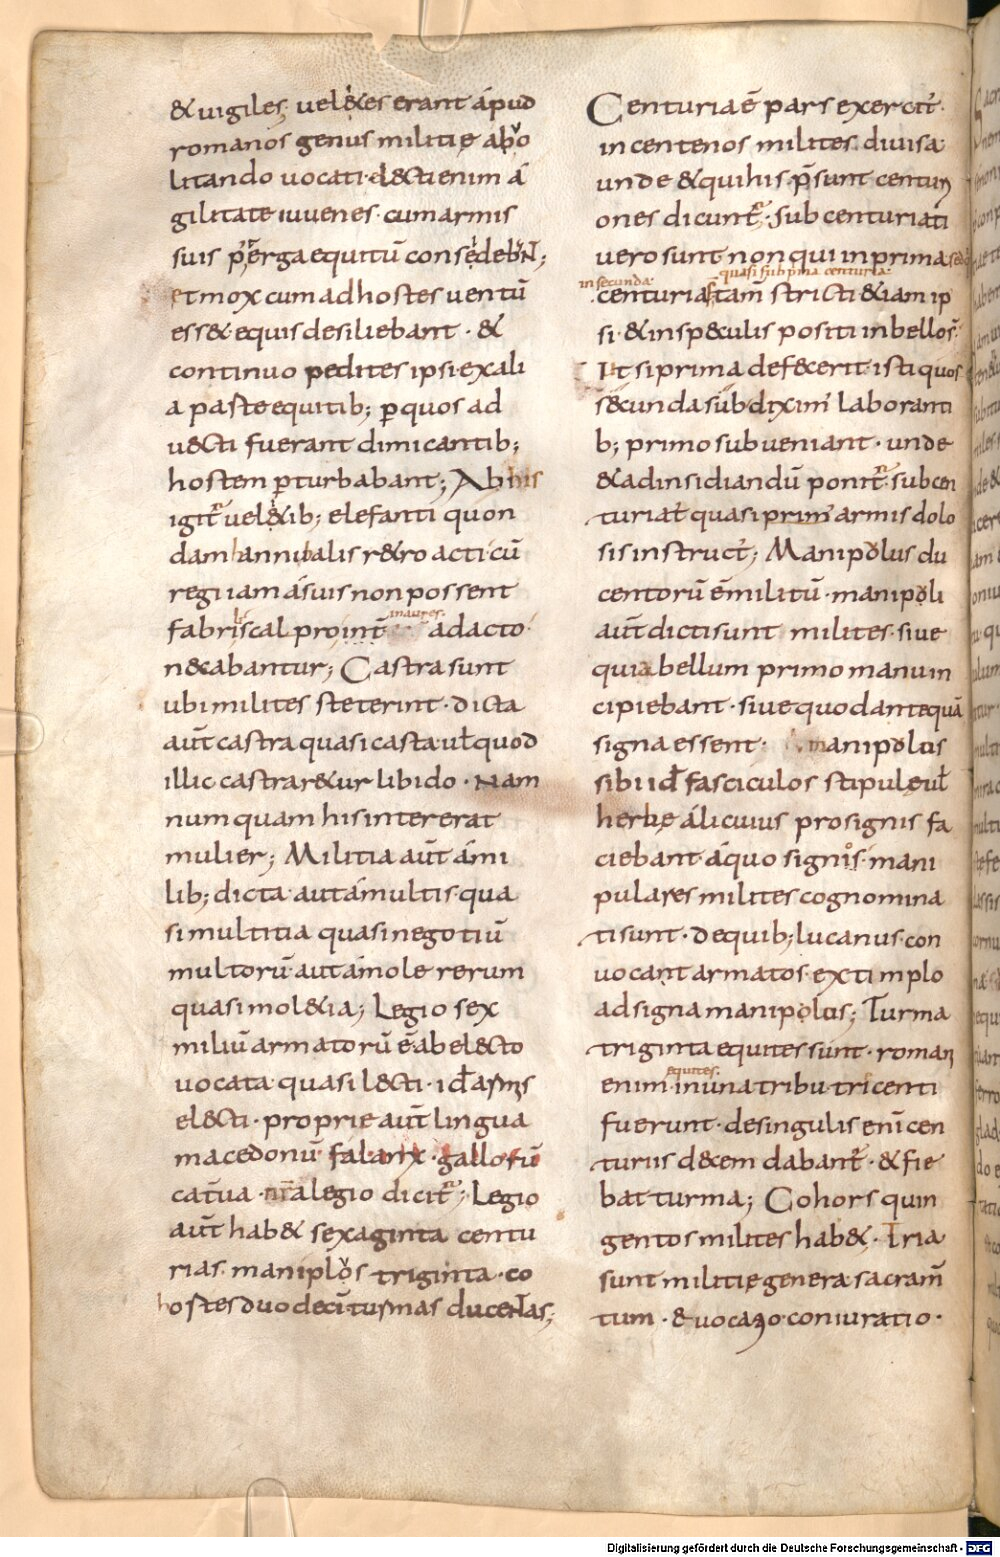 & uigiles; uel&es erant apud
romanos genus militię abuo
litando uocati· del&cti enim a
gilitate iuuenes· cum armis
suis p̄ terga equitū considebaNt;
et mox cum ad hostes uentū
ess& equis desiliebant · &
continuo pedites ipsi ex ali
a paste equitib; ꝑ quos ad
uecti fuerant dimicantib;
hostem ꝑturbabant; Ab his
igit̄ uel&ib; elefanti quon
dam hannibalis r&ro acti cū
regi iam a suis non possent
fabrili scalpro int̄ inaures adacto
n&abantur; Castra sunt
ubi milites steterint· dicta
aūt castra quasi casta· uł quod
illic castrar&ur libido · Nam
numquam his intererat
mulier; Militia aūt a mi
lib; dicta aut a multis· qua
si multitia quasi negotiū
multorū· aut a mole rerum
quasi mol&ia; Legio sex
miliū armatorū ē ab electo
uocata quasi lecti· id armis
electi· proprie aūt lingua
macedonū falanx· gallorū
cat̄ua· nr̄a legio dicit̄; Legio
aūt hab& sexaginta centu
rias· maniplos triginta· co
hostes duodecī turmas duceNtas;
Centuria ē pars exercit̄·
in centenos milites diuisa
unde & qui his p̄sunt centuri
ones dicunt̄· Subcenturiati
uero sunt non qui in prima sed
in secunda quasi sub prima centuria
centuria st̄ tam̄ stricti & iam ip
si· & in sp&culis positi in bellos̄·
Ut si prima def&cerit isti quos
s&cunda sub dixim̄ laboranti
b; primo subueniant· unde
& ad insidiandū ponit̄ subcen
turiat̄ quasi prim̄ armis dolo
sis instruct̄; Manipolus du
centorū ē militū· manipoli
aūt dicti sunt milites· siue
quia bellum primo manu in
cipiebant· siue quod antequā
signa essent· manipolus
sibi id fasciculos stipulę uł
herbę alicuius pro signis fa
ciebant a quo signos mani
pulares milites cognomina
ti sunt· de quib; lucanus· con
uocant armatos· extimplo
ad signa manipolus; Turma
triginta equites sunt· roman
equites
enim in una tribu tricenti
fuerunt· de singulis enī cen
turiis d&cem dabant̄· & fie
bat turma; Cohors quin
gentos milites hab&· Tria
sunt militię genera sacram̄
tum· & uocatio· coniuratio·